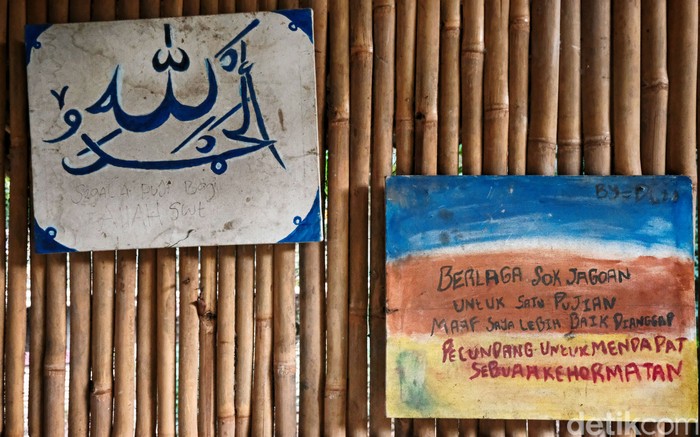 الحمد لله
SEGALA PUJI Bagi
Allah Swt
BERLAGA SOK JAGOAN
UNTUK SATU PUJIAN
MAAF SAYA LEBIH BAIK DIANGGAP
PECUNDANG UNTUK MENDAPAT
SEBUAH KEHORMATAN
detikcom